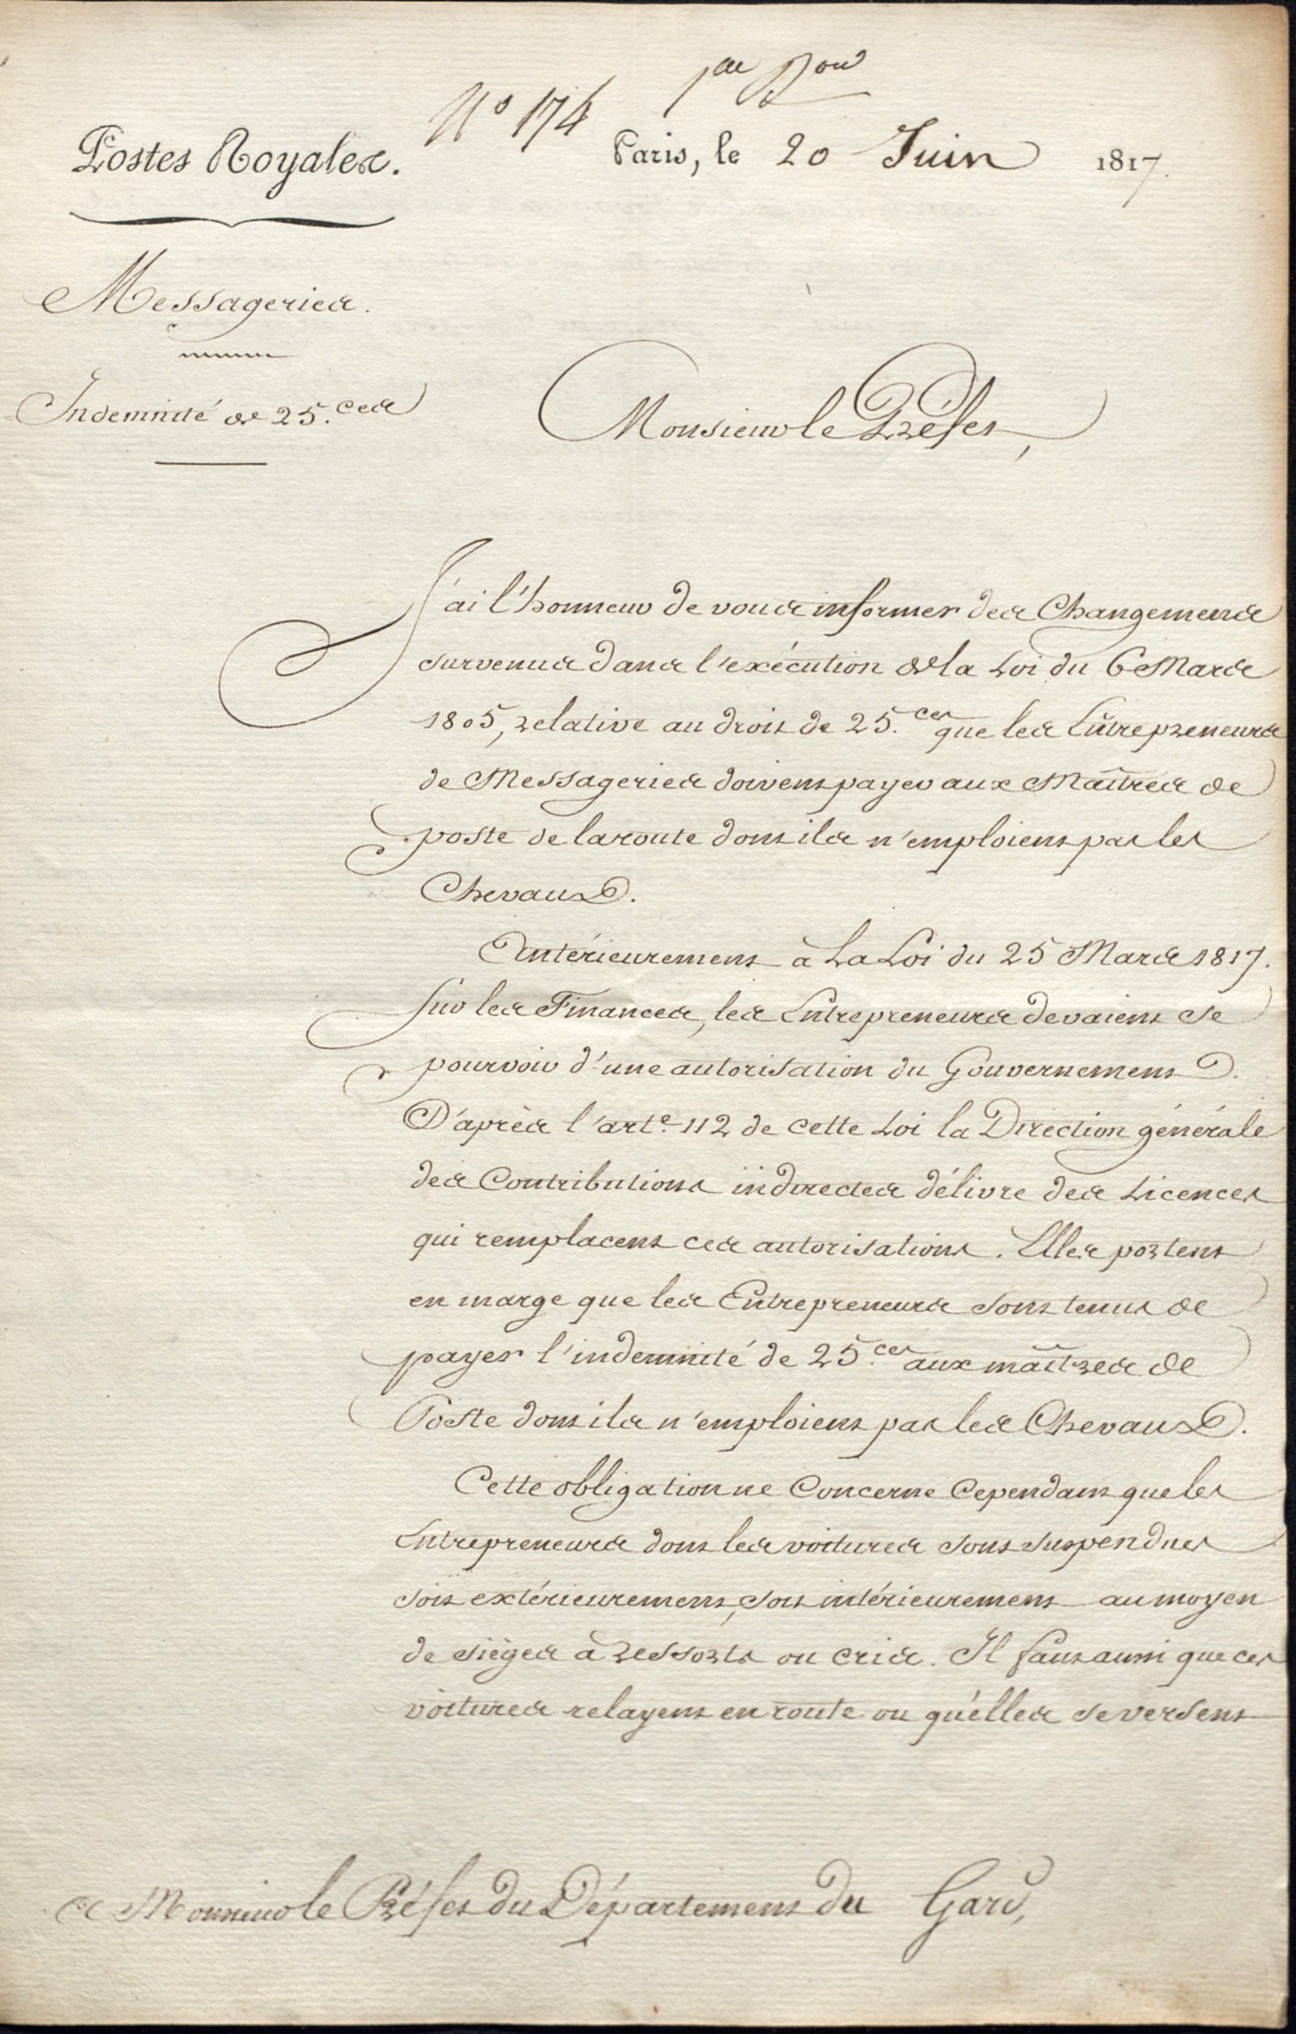 N° 174
Postes Royales.
Paris, le 20 Juin 1817.
Messageries.
Indemnité de 25. ces
Monsieur le Préfet,
J'ai l'honneur de vous informer des Changemens
survenus dans l'exécution de la Loi du 6 Mars
1805, relative au droit de 25. ces que les Entrepreneurs
de Messageries doivent payer aux Maîtres de
poste de la route dont ils n'emploient pas les
Chevaux.
Antérieurement à la Loi du 25 Mars 1817.
sur les Finances, les Entrepreneurs devaient se
pourvoir d'une autorisation du Gouvernement.
D'après l'arte. 112 de cette Loi la Direction générale
des Contributions indirectes délivre des Licences
qui remplacent ces autorisations. Elles portent
en marge que les Entrepreneurs sont tenus de
payer l'indemnité de 25. ces aux maîtres de
Poste dont ils n'emploient pas les Chevaux.
Cette obligation ne Concerne Cependant que les
Entrepreneurs dont les voitures sont suspendues
soit extérieurement, soit intérieurement au moyen
de sièges à ressorts ou crics. Il faut aussi que ces
voitures relayent en route ou qu'elles se versent
à Monsieur le Préfet du Département du Gard,